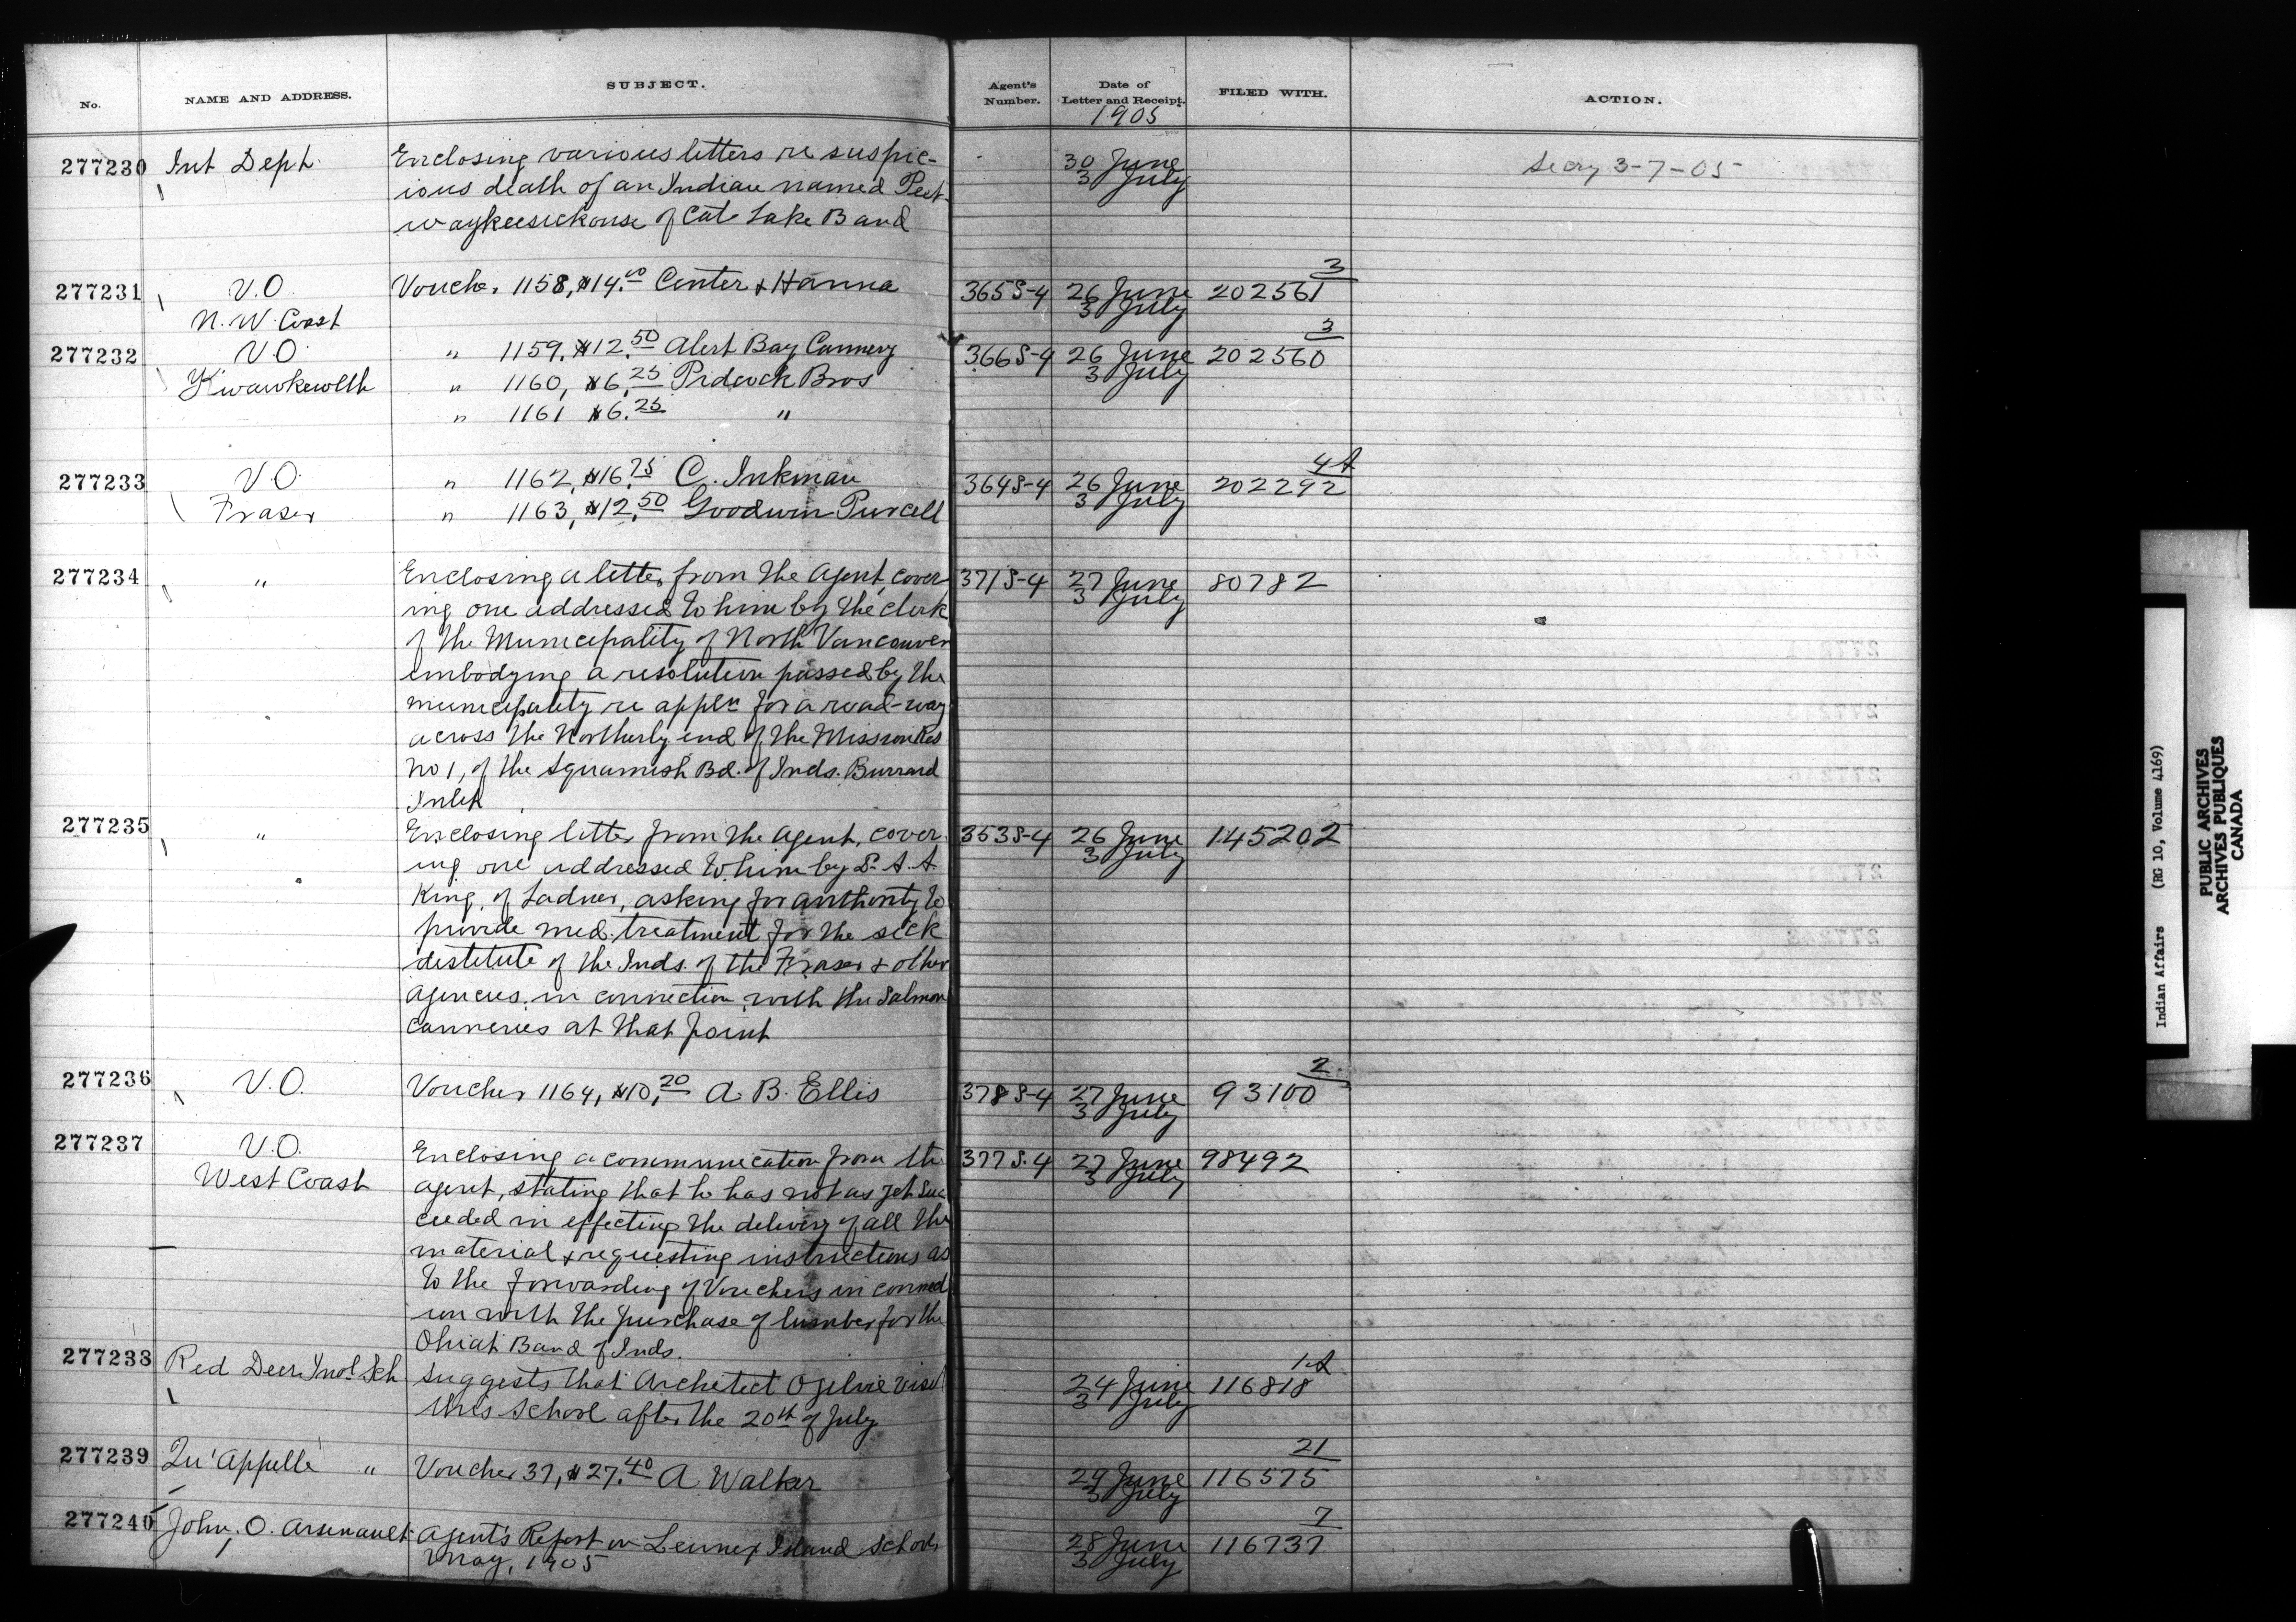 No. NAME AND ADDRESS. SUBJECT. Agent's Number. Date of Letter and Receipt. FILED WITH. ACTION.
1905
277230 Int Dept. Enclosing various letters re suspic- 30 June Secry 3-7-05
ious death of an Indian named Peet- 3 July
waykeesickouse of Cat Lake Band
3
277231 V.O. Voucher 1158, $14.00 Center & Hanna 365 S-4 26 June 202561
N. W. Coast 3 July
3
277232 V.O. " 1159, $12.50 Alert Bay Cannery 366 S-4 26 June 202560
Kwawkewlth " 1160, $6.25 Pidcock Bros 3 July
" 1161 $6.25 "
4A
277233 V.O. " 1162, $16.75 C. Inkman 364 S-4 26 June 202292
Fraser " 1163, $12.50 Goodwin Purcell 3 July
277234 " Enclosing a letter from the Agent, cover 371 S-4 27 June 80782
ing one addressed to him by the clerk 3 July
of the Municipality of North Vancouver
embodying a resolution passed by the
municipality re appln for a road-way
across the Northerly end of the Mission Res
No 1, of the Squamish Bd. of Inds. Burrard
Inlet
277235 " Enclosing letter from the Agent, cover- 353 S-4 26 June 145202
ing one addressed to him by Dr. A. A. 3 July
King, of Ladner, asking for authority to
provide med. treatment for the sick
destitute of the Inds. of the Fraser & other
agencies, in connection with the salmon
canneries at that point
2
277236 V.O. Voucher 1164, $10.20 A. B. Ellis 378 S-4 27 June 93100
3 July
277237 V.O. Enclosing a communication from the 377 S-4 27 June 98492
West Coast agent, stating that he has not as yet suc 3 July
ceeded in effecting the delivery of all the
material & requesting instructions as
to the forwarding of Vouchers in connect
ion with the purchase of lumber for the
Ohiat Band of Inds.
1-A
277238 Red Deer Indl Sch Suggests that Architect Ogilvie visit 24 June 116818
this school after the 20th of July 3 July
21
277239 Qu'Appelle " Voucher 37, $27.40 A Walker 29 June 116575
3 July
7
277240 John. O. Arsenault Agent's Report on Lennox Island School 28 June 116737
May, 1905 3 July
Indian Affairs (RG 10, Volume 4169)
PUBLIC ARCHIVES
ARCHIVES PUBLIQUES
CANADA